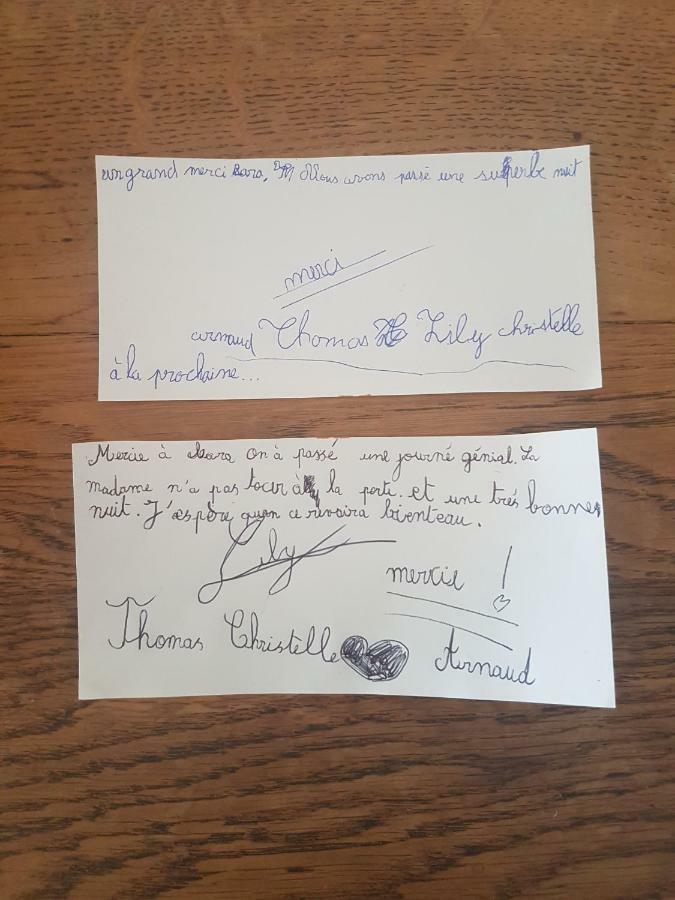 un grand merci Sara, Nous avons passé une superbe nuit
merci
arnaud Thomas Lily christelle
à la prochaine...
Mercie à Sara on à passé une journé génial. La
madame n'a pas tocer à la porte. et une trés bonnes
nuit. J'æspère quon ce revoira bienteau.
Lily
mercie !
Thomas Christelle Arnaud